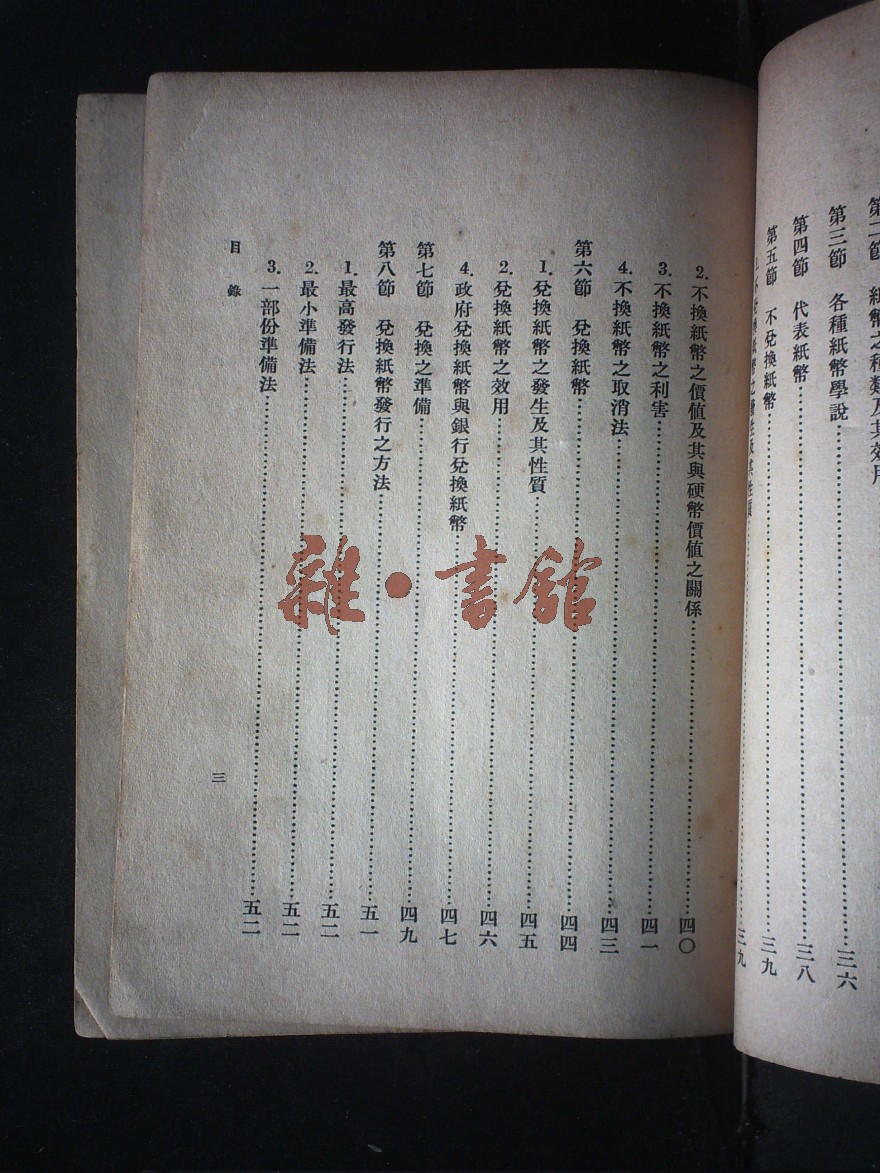 第二節 紙幣之種類及其效用
第三節 各種紙幣學說……三六
第四節 代表紙幣……三八
第五節 不兌換紙幣……三九
1.不兌換紙幣之發生及其性質……三九
2.不換紙幣之價値及其與硬幣價値之關係……四〇
3.不換紙幣之利害……四一
4.不換紙幣之取消法……四三
第六節 兌換紙幣……四四
1.兌換紙幣之發生及其性質……四五
2.兌換紙幣之效用……四六
4.政府兌換紙幣與銀行兌換紙幣……四七
第七節 兌換之準備……四九
第八節 兌換紙幣發行之方法……五一
1.最高發行法……五二
2.最小準備法……五二
3.一部份準備法……五二
目錄
三
雜·書館